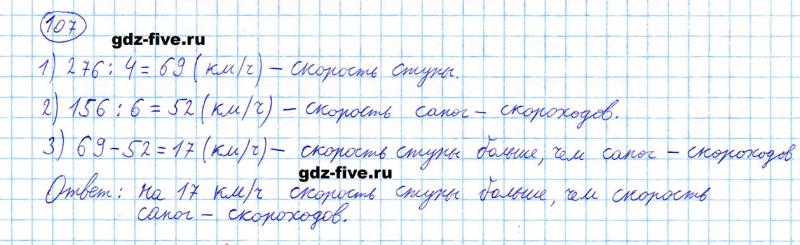 107
gdz-five.ru
1) 276 : 4 = 69 (км/ч) – скорость ступы.
2) 156 : 6 = 52 (км/ч) – скорость сапог – скороходов.
3) 69 – 52 = 17 (км/ч) – скорость ступы больше, чем сапог – скороходов
gdz-five.ru
Ответ: на 17 км/ч скорость ступы больше, чем скорость
сапог – скороходов.